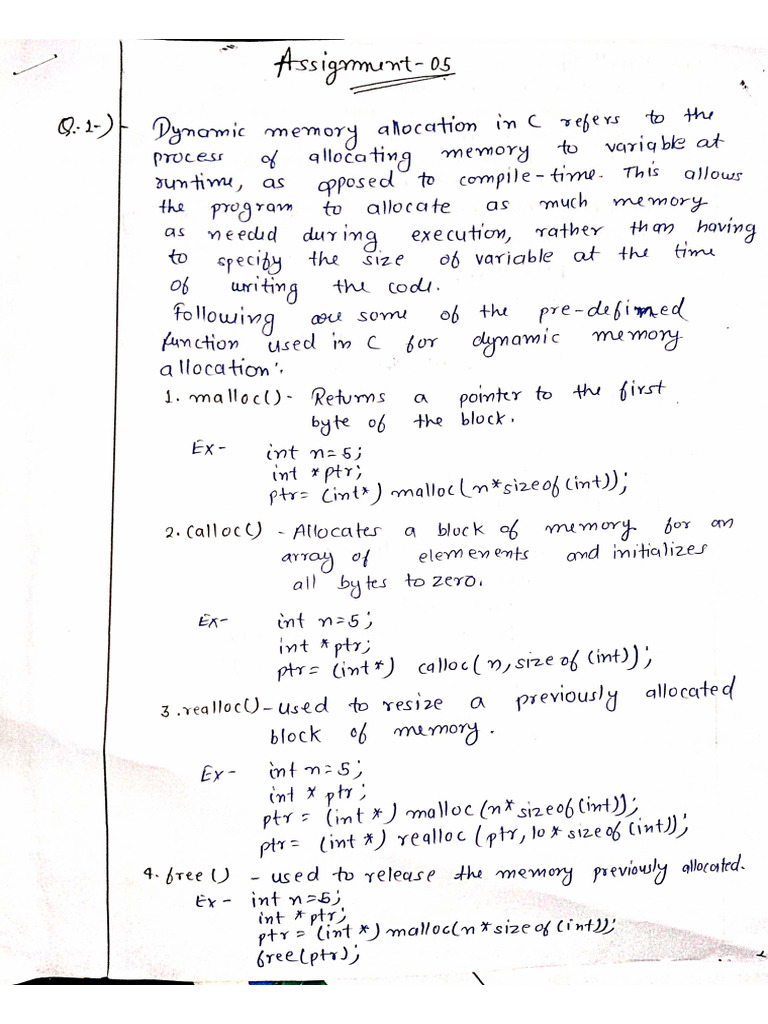 Assignment-05
Q.-1-) - Dynamic memory allocation in C refers to the
process of allocating memory to variable at
runtime, as opposed to compile-time. This allows
the program to allocate as much memory
as needed during execution, rather than having
to specify the size of variable at the time
of writing the code.
Following are some of the pre-defimed
function used in C for dynamic memory
allocation:.
1. malloc() - Returns a pointer to the first
byte of the block.
Ex - int n=5;
int *ptr;
ptr= (int*) malloc(n*sizeof(int));
2. Calloc() - Allocates a block of memory for an
array of elemenents and initializes
all bytes to zero.
Ex- int n=5;
int *ptr;
ptr= (int*) calloc(n, size of (int));
3. realloc() - used to resize a previously allocated
block of memory.
Ex - int n=5;
int * ptr;
ptr = (int *) malloc (n* sizeof(int));
ptr= (int *) realloc (ptr, 10* size of (int));
4. free () - used to release the memory previously allocated.
Ex - int n=5;
int *ptr;
ptr = (int *) malloc(n * size of (int));
free(ptr);